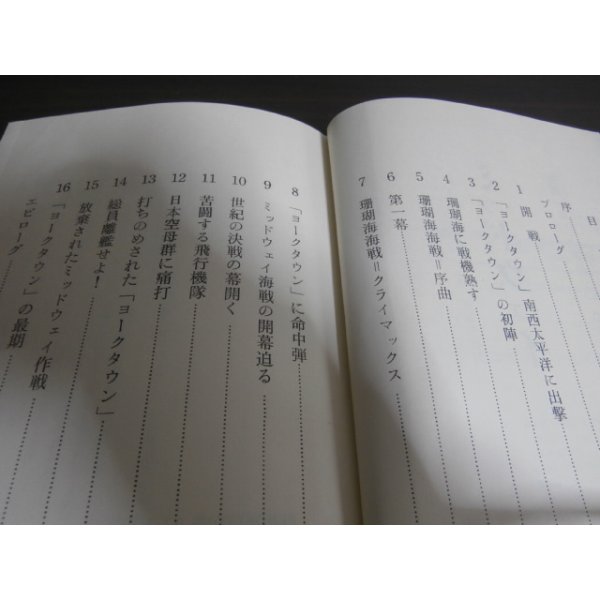 目
序
プロローグ
1 開戦
2 「ヨークタウン」南西太平洋に出撃
3 「ヨークタウン」の初陣
4 珊瑚海に戦機熟す
5 珊瑚海海戦＝序曲
6 第一幕
7 珊瑚海海戦＝クライマックス
8 「ヨークタウン」に命中弾
9 ミッドウェイ海戦の開幕迫る
10 世紀の決戦の幕開く
11 苦闘する飛行機隊
12 日本空母群に痛打
13 打ちのめされた「ヨークタウン」
14 総員離艦せよ！
15 放棄されたミッドウェイ作戦
16 「ヨークタウン」の最期
エピローグ